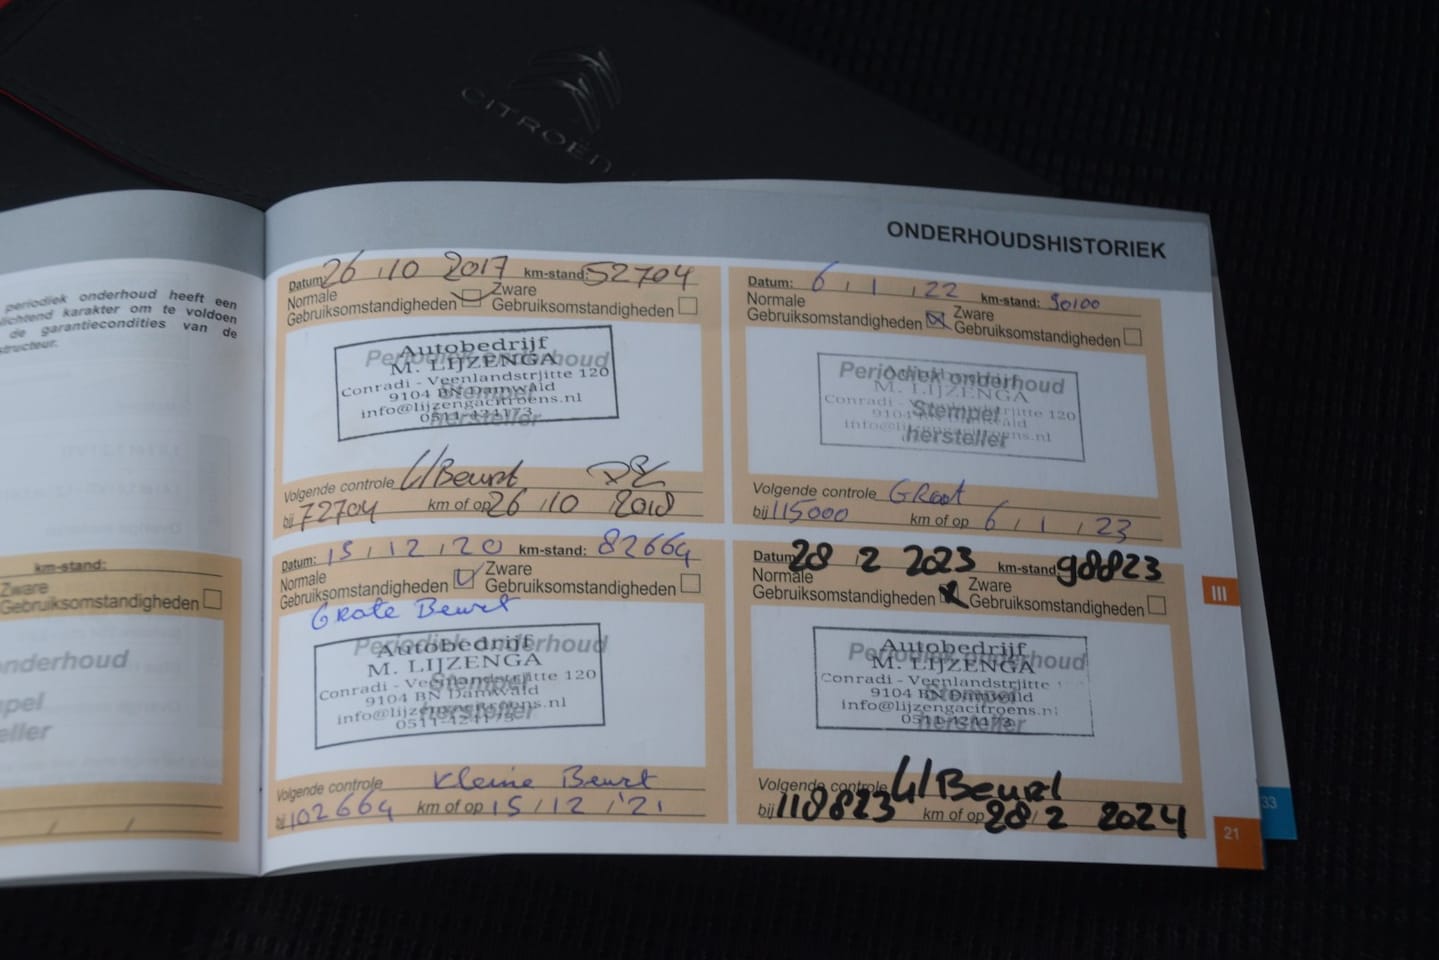 CITROËN
periodiek onderhoud heeft een
lichtend karakter om te voldoen
de garantiecondities van de
structeur.
km-stand:
Zware
Gebruiksomstandigheden
onderhoud
pel
eller
ONDERHOUDSHISTORIEK
Datum: 26 10 2017 km-stand: 52704
Normale Zware
Gebruiksomstandigheden Gebruiksomstandigheden
Periodiek onderhoud
Stempel
hersteller
Autobedrijf
M. LIJZENGA
Conradi - Veenlandstrjitte 120
9104 BN Damwâld
info@lijzengacitroens.nl
0511-424173
Volgende controle Beurt
bij 72704 km of op 26 10 2018
Datum: 15 / 12 / 20 km-stand: 82664
Normale Zware
Gebruiksomstandigheden Gebruiksomstandigheden
Grote Beurt
Periodiek onderhoud
Stempel
hersteller
Autobedrijf
M. LIJZENGA
Conradi - Veenlandstrjitte 120
9104 BN Damwâld
info@lijzengacitroens.nl
0511-424173
Volgende controle Kleine Beurt
bij 102664 km of op 15 / 12 / '21
Datum: 6 / 1 / 22 km-stand: 90100
Normale Zware
Gebruiksomstandigheden Gebruiksomstandigheden
Periodiek onderhoud
Stempel
hersteller
Autobedrijf
M. LIJZENGA
Conradi - Veenlandstrjitte 120
9104 BN Damwâld
info@lijzengacitroens.nl
Volgende controle Groot
bij 115000 km of op 6 / 1 / 23
Datum: 28 2 2023 km-stand: 98823
Normale Zware
Gebruiksomstandigheden Gebruiksomstandigheden
Periodiek onderhoud
Stempel
hersteller
Autobedrijf
M. LIJZENGA
Conradi - Veenlandstrjitte
9104 BN Damwâld
info@lijzengacitroens.nl
0511-424173
Volgende controle Beurt
bij 118823 km of op 28 2 2024
III
33
21